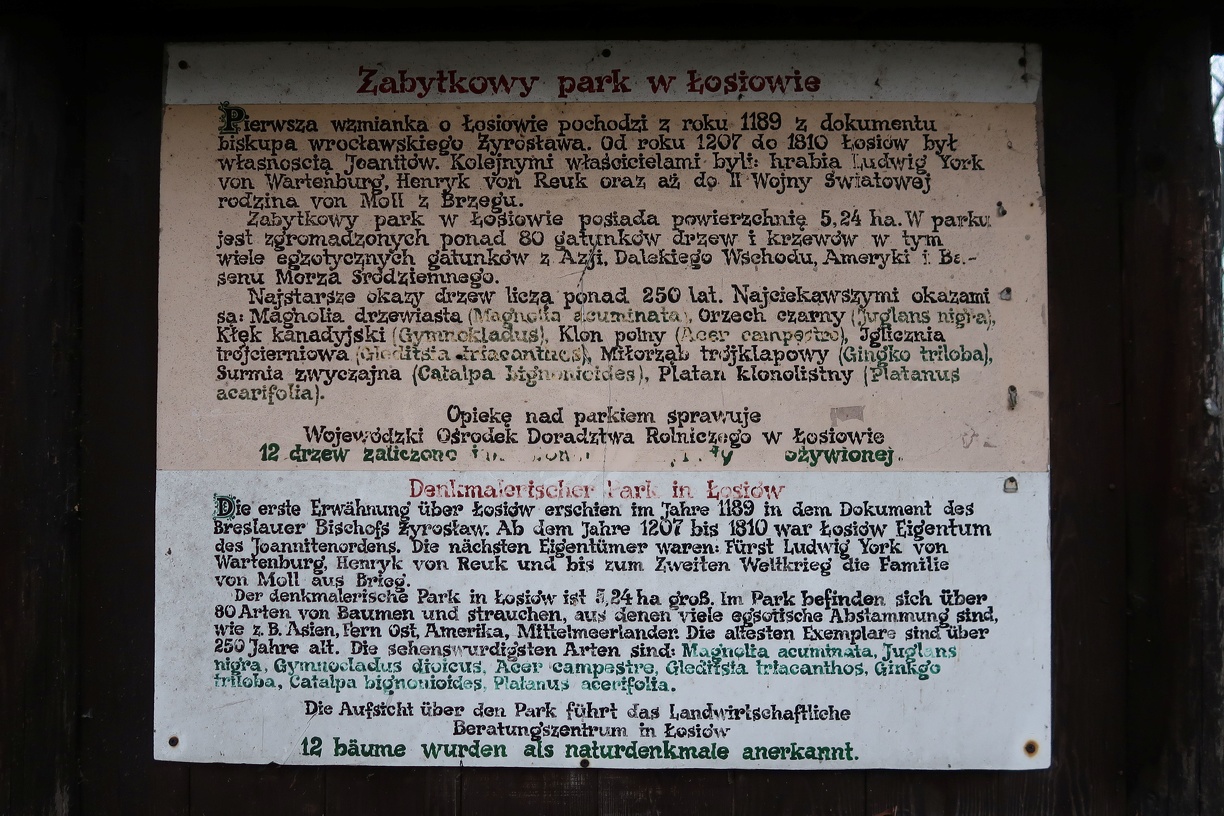 Zabytkowy park w Łosiowie
Pierwsza wzmianka o Łosiowie pochodzi z roku 1189 z dokumentu
biskupa wrocławskiego Żyrosława. Od roku 1207 do 1810 Łosiów był
własnością Joanitów. Kolejnymi właścicielami byli: hrabia Ludwig York
von Wartenburg, Henryk von Reuk oraz aż do II Wojny Światowej
rodzina von Moll z Brzegu.
Zabytkowy park w Łosiowie posiada powierzchnię 5,24 ha. W parku
jest zgromadzonych ponad 80 gatunków drzew i krzewów w tym
wiele egzotycznych gatunków z Azji, Dalekiego Wschodu, Ameryki i Ba-
senu Morza Śródziemnego.
Najstarsze okazy drzew liczą ponad 250 lat. Najciekawszymi okazami
są: Magnolia drzewiasta (Magnolia acuminata), Orzech czarny (Juglans nigra),
Kłęk kanadyjski (Gymnokladus), Klon polny (Acer campestre), Iglicznia
trójcierniowa (Gleditsia triacanthos), Miłorząb trójklapowy (Gingko triloba),
Surmia zwyczajna (Catalpa bignonioides), Platan klonolistny (Platanus
acarifolia).
Opiekę nad parkiem sprawuje
Wojewódzki Ośrodek Doradztwa Rolniczego w Łosiowie
12 drzew zaliczono ożywionej.
Denkmalerischer Park in Łosiów
Die erste Erwähnung über Łosiów erschien im Jahre 1189 in dem Dokument des
Breslauer Bischofs Żyrosław. Ab dem Jahre 1207 bis 1810 war Łosiów Eigentum
des Joannitenordens. Die nächsten Eigentümer waren: Fürst Ludwig York von
Wartenburg, Henryk von Reuk und bis zum Zweiten Weltkrieg die Familie
von Moll aus Brieg.
Der denkmalerische Park in Łosiów ist 5,24 ha groß. Im Park befinden sich über
80 Arten von Baumen und strauchen, aus denen viele egsotische Abstammung sind,
wie z. B. Asien, Fern Ost, Amerika, Mittelmeerlander. Die altesten Exemplare sind über
250 Jahre alt. Die sehenswurdigsten Arten sind: Magnolia acuminata, Juglans
nigra, Gymnocladus dioicus, Acer campestre, Gleditsia triacanthos, Ginkgo
triloba, Catalpa bignonioides, Platanus acerifolia.
Die Aufsicht über den Park führt das Landwirtschaftliche
Beratungszentrum in Łosiów
12 bäume wurden als naturdenkmale anerkannt.